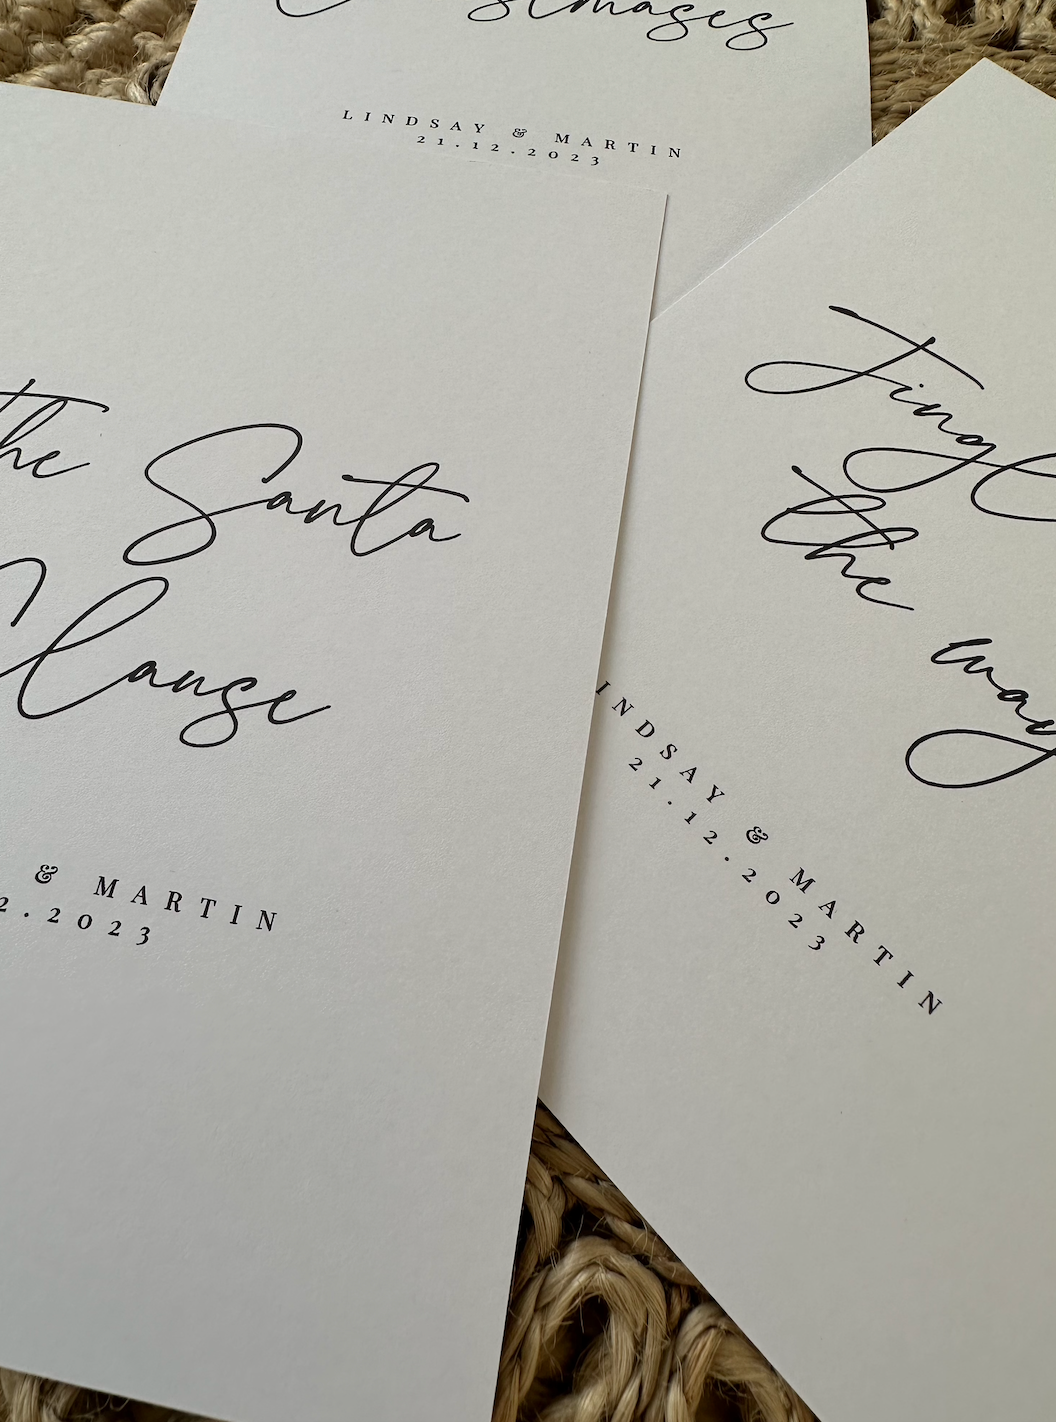 LINDSAY & MARTIN
21.12.2023
The Santa
Clause
& MARTIN
2.2023
Jingl
the way
INDSAY & MARTIN
21.12.2023